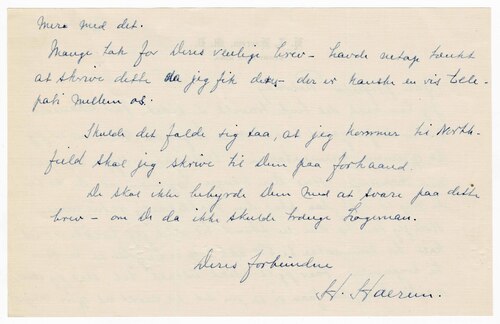 mere med det.
Mange tak for Deres venlige brev – havde netop tænkt
at skrive dette da jeg fik det – der er kanske en vis tele-
pati mellem os.
Skulde det falde sig saa, at jeg kommer til North-
field skal jeg skrive til Dem paa forhaand.
De skal ikke bebyrde Dem med at svare paa dette
brev – om De da ikke skulde
Deres forbindne
H. Haerem.